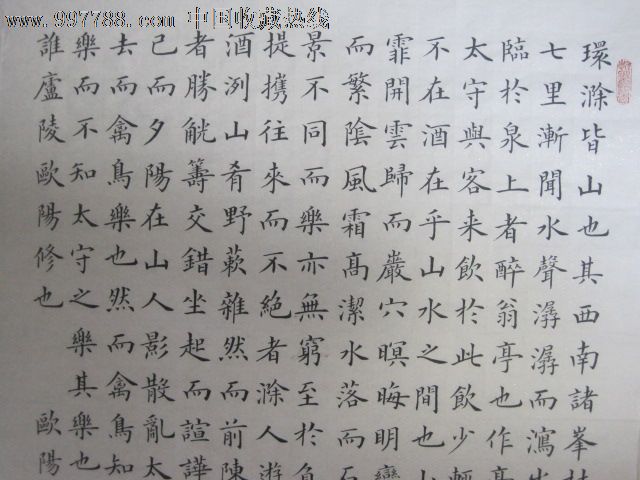 www.997788.com 中国收藏热线
環滁皆山也其西南諸峯林
七里漸聞水聲潺潺而瀉出
臨於泉上者醉翁亭也作亭
太守與客来飲於此飲少輒
不在酒在乎山水之間也山
霏開雲歸而巖穴暝晦明變
而繁陰風霜高潔水落而石
景不同而樂亦無窮至於負
提携往来而不絕者滁人遊
酒洌山肴野蔌雜然而前陳
者勝觥籌交錯坐起而諠譁
已而夕陽在山人影散亂太
去而禽鳥樂也然而禽鳥知
樂而不知太守之樂其樂也
誰廬陵歐陽修也 歐陽